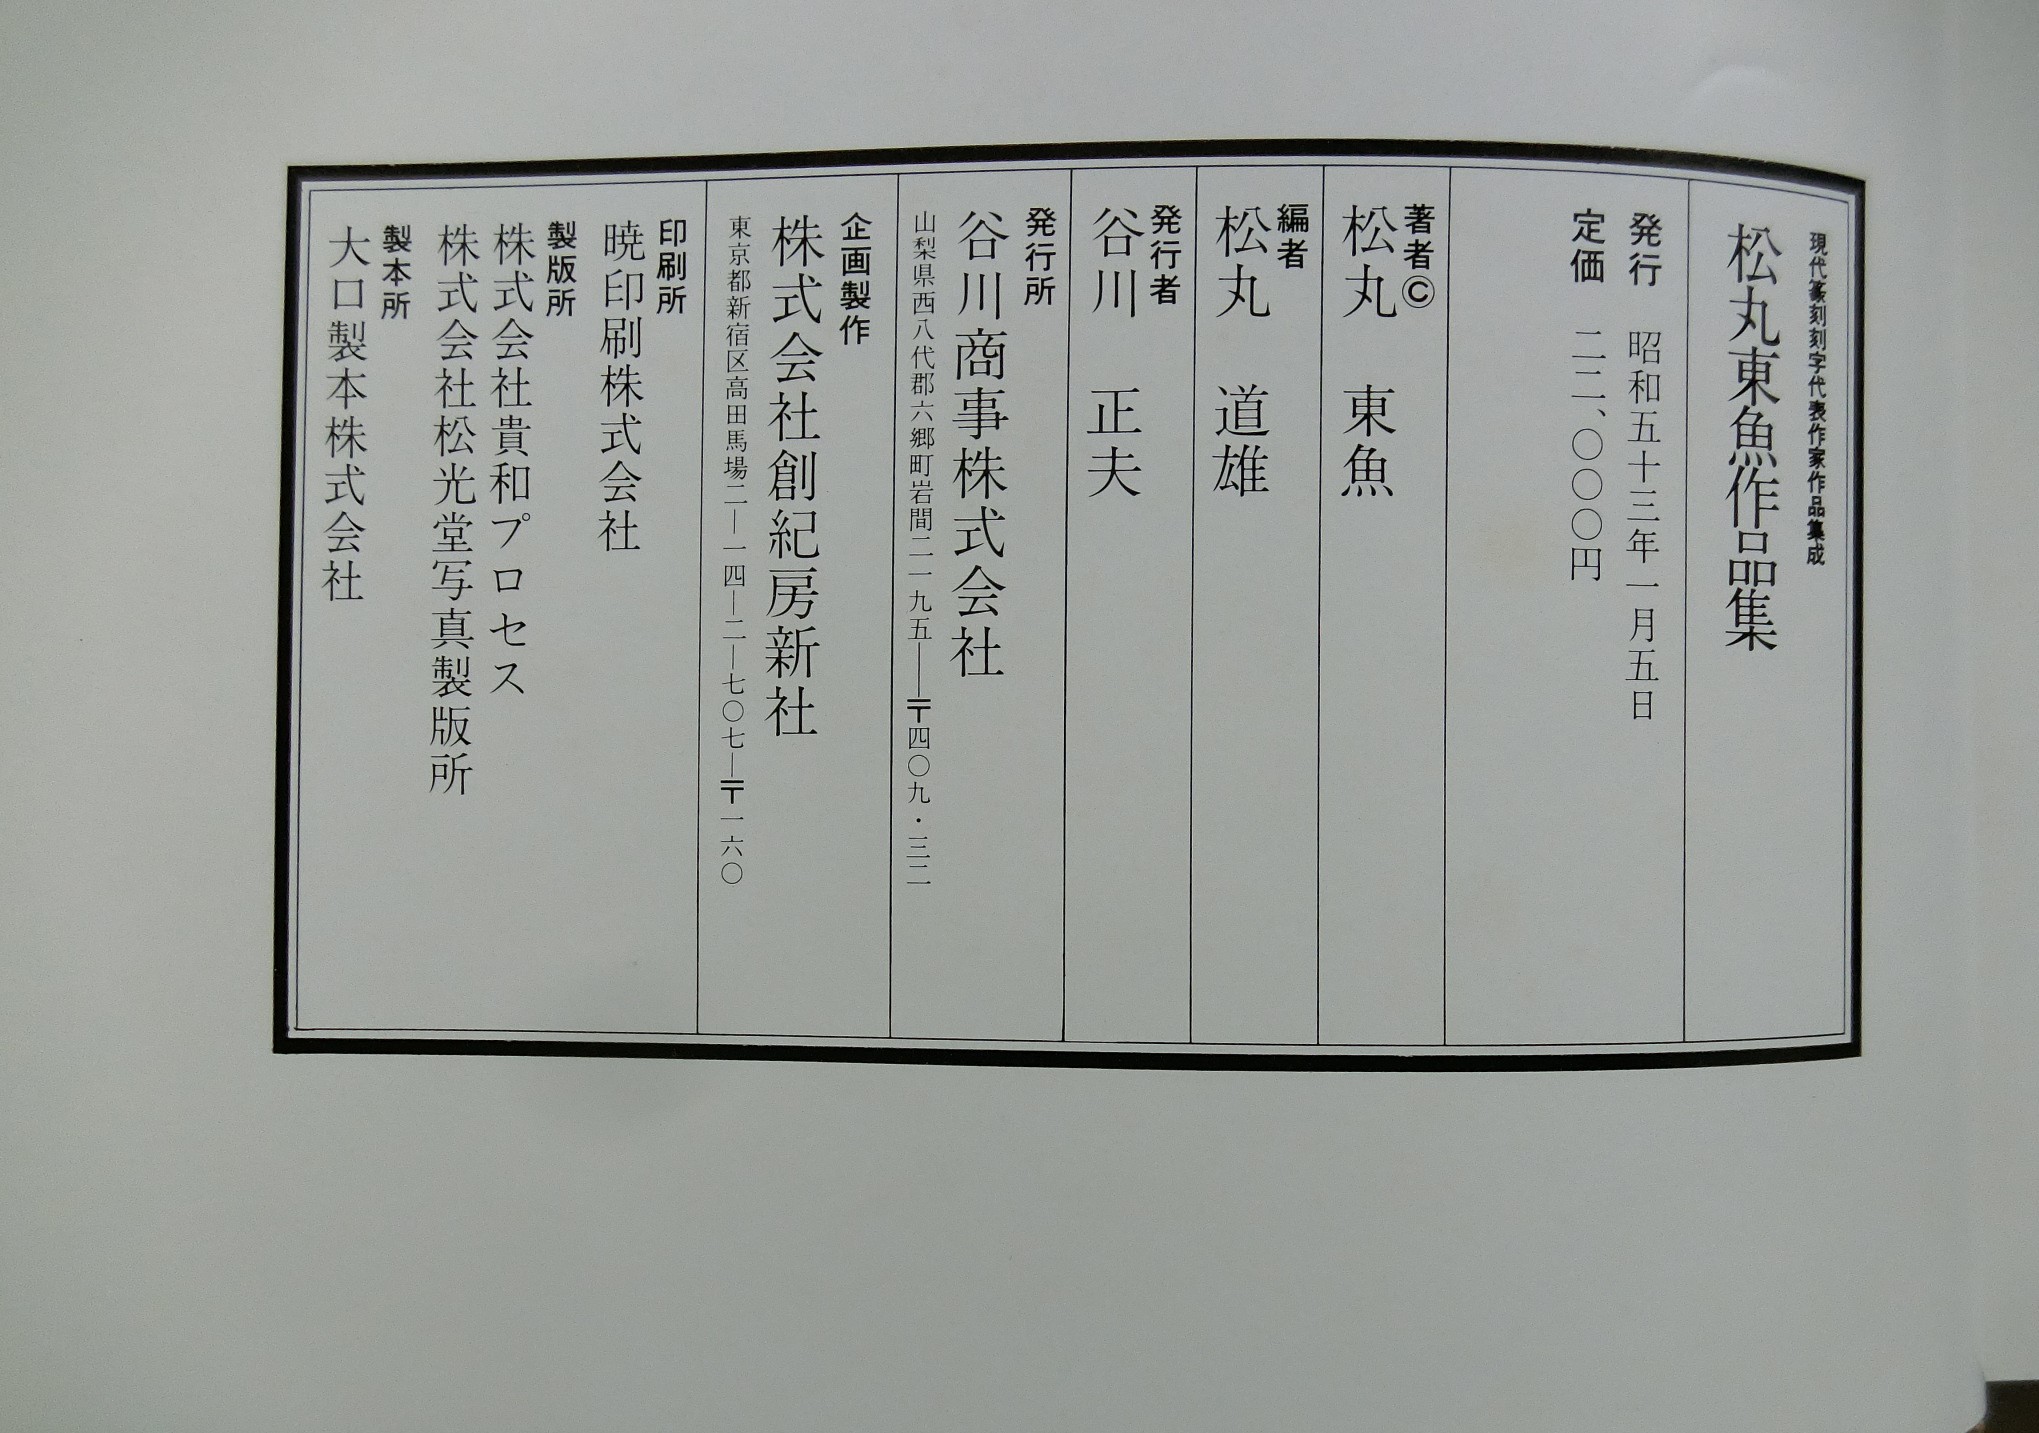 現代篆刻刻字代表作家作品集成
松丸東魚作品集
発行　昭和五十三年一月五日
定価　二二、〇〇〇円
著者©
松丸　東魚
編者
松丸　道雄
発行者
谷川　正夫
発行所
谷川商事株式会社
山梨県西八代郡六郷町岩間二一九五——〒四〇九・三二
企画製作
株式会社創紀房新社
東京都新宿区高田馬場二—一四—二—七〇七—〒一六〇
印刷所
暁印刷株式会社
製版所
株式会社貴和プロセス
株式会社松光堂写真製版所
製本所
大口製本株式会社